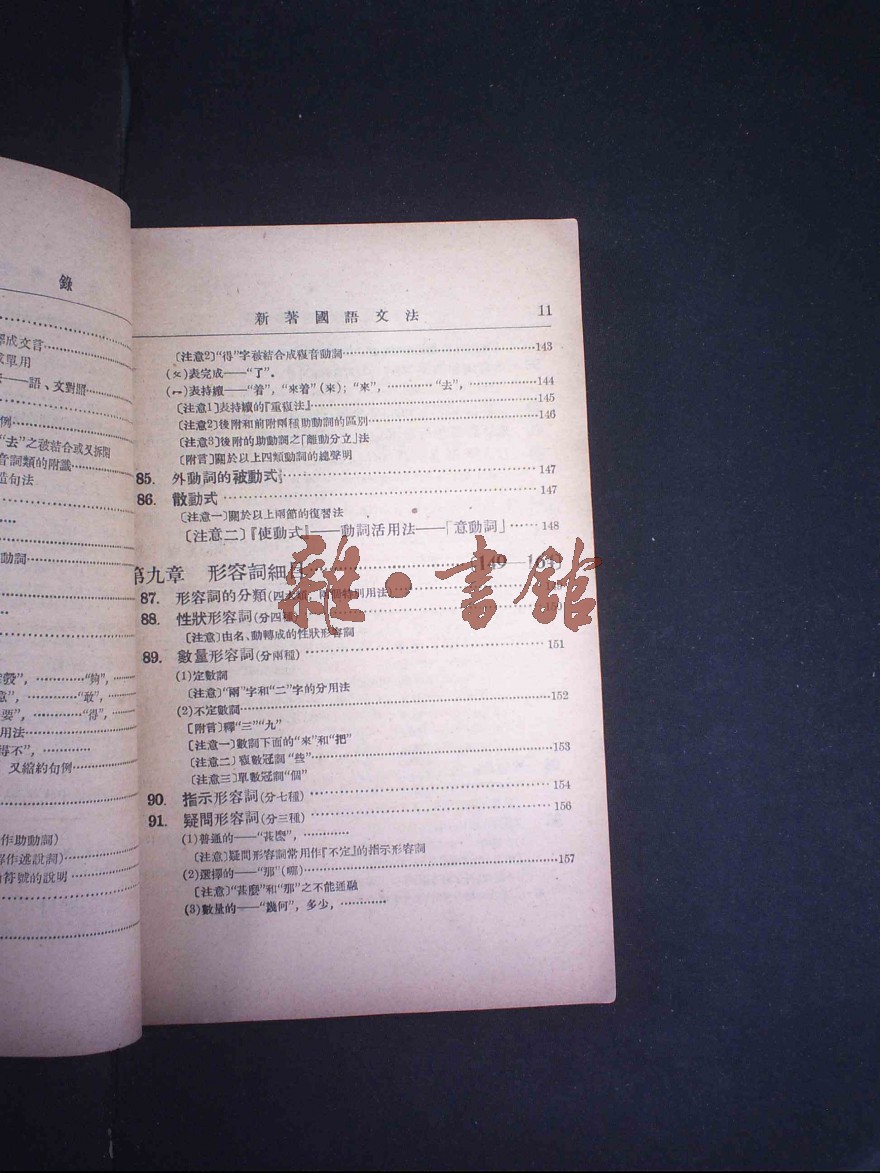 錄
成文言
單用
語、文對照
例
“去”之被結合或又拆開
音詞類的附識
造句法
動詞
“夠”,
“敢”,
“得”,
用法
得不”,
又縮約句例
作助動詞)
作述說詞)
符號的說明
新著國語文法 11
〔注意2〕“得”字被結合成複音動詞 143
(ㄆ)表完成——“了”。
(ㄇ)表持續——“着”,“來着”(來);“來”, “去”, 144
〔注意1〕表持續的『重複法』 145
〔注意2〕後附和前附兩種助動詞的區別 146
〔注意3〕後附的助動詞之「離動分立」法
〔附言〕關於以上四類動詞的總聲明
85. 外動詞的被動式 147
86. 散動式 147
〔注意一〕關於以上兩節的復習法
〔注意二〕『使動式』——動詞活用法——「意動詞」 148
第九章 形容詞細目 (149—164)
87. 形容詞的分類(四大類,兩個特別用法)
88. 性狀形容詞(分四種) 150
〔注意〕由名、動轉成的性狀形容詞
89. 數量形容詞(分兩種) 151
(1)定數詞
〔注意〕“兩”字和“二”字的分用法
(2)不定數詞 152
〔附言〕釋“三”“九”
〔注意一〕數詞下面的“來”和“把”
〔注意二〕複數冠詞“些” 153
〔注意三〕單數冠詞“個”
90. 指示形容詞(分七種) 154
91. 疑問形容詞(分三種) 156
(1)普通的——“甚麼”,
〔注意〕疑問形容詞常用作『不定』的指示形容詞
(2)選擇的——“那”(哪) 157
〔注意〕“甚麼”和“那”之不能通融
(3)數量的——“幾何”,多少,
雜·書館